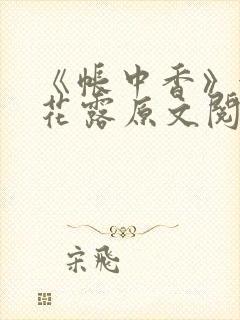 《帐中香》
花露原文阅
宋飛